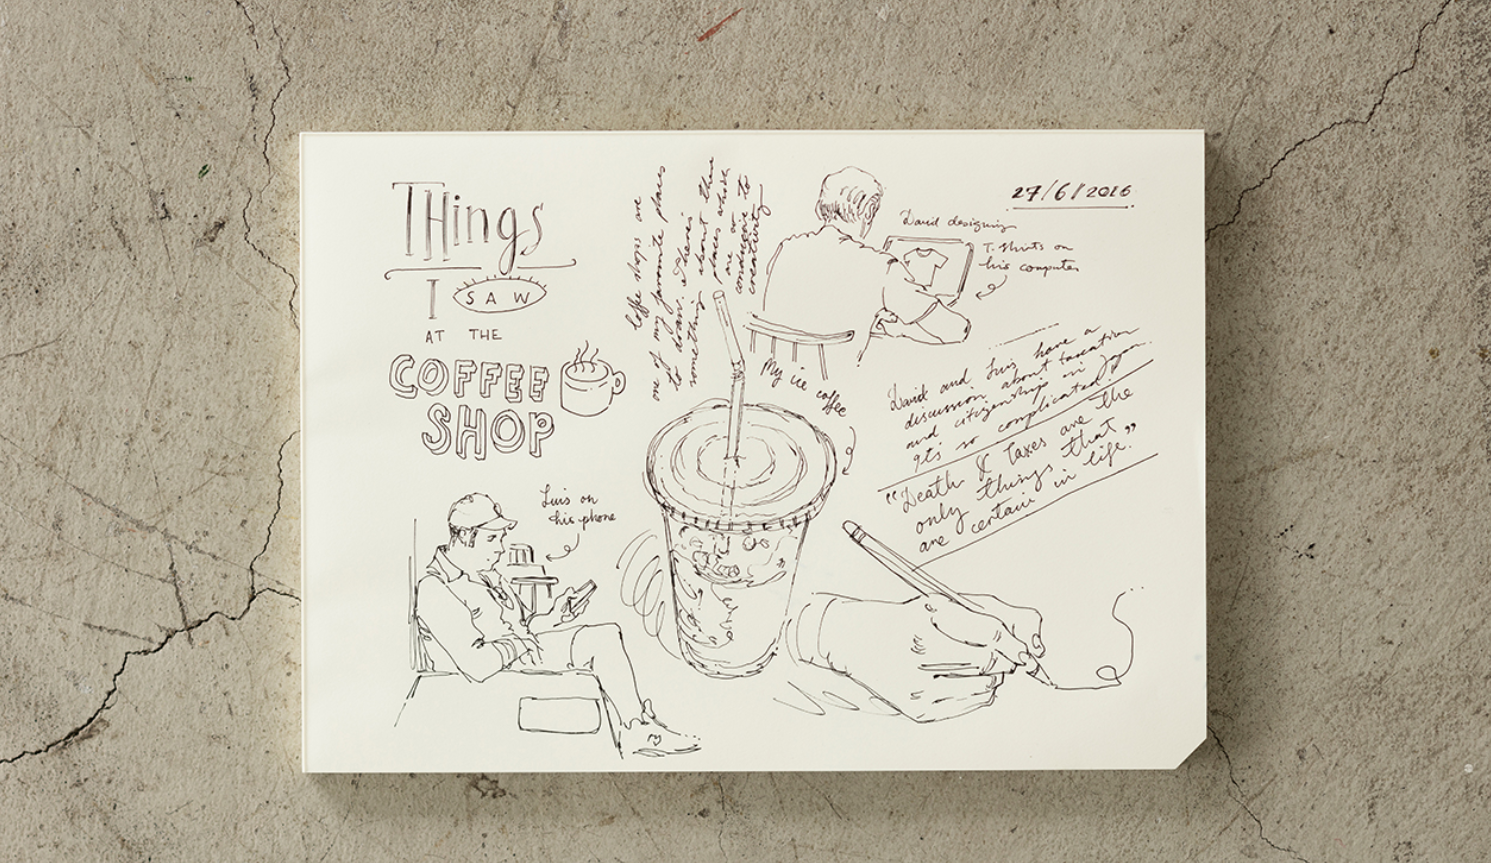 THings
I SAW
AT THE
COFFEE
SHOP
Coffee shops are
one of my favourite places
to draw. There is
something about these
places which
are so
conducive to
creativity
27/6/2016
David designing
T-shirts on
his computer
My ice coffee
David and Luis have a
discussion about taxation
and citizenship in Japan.
It's so complicated!
"Death & Taxes are the
only things that
are certain in life."
Luis on
his phone